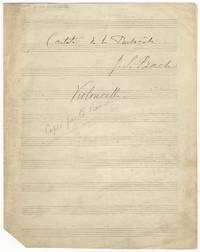 Cantate de la Pentecôte
J. S. Bach
Violoncelle
Copie par